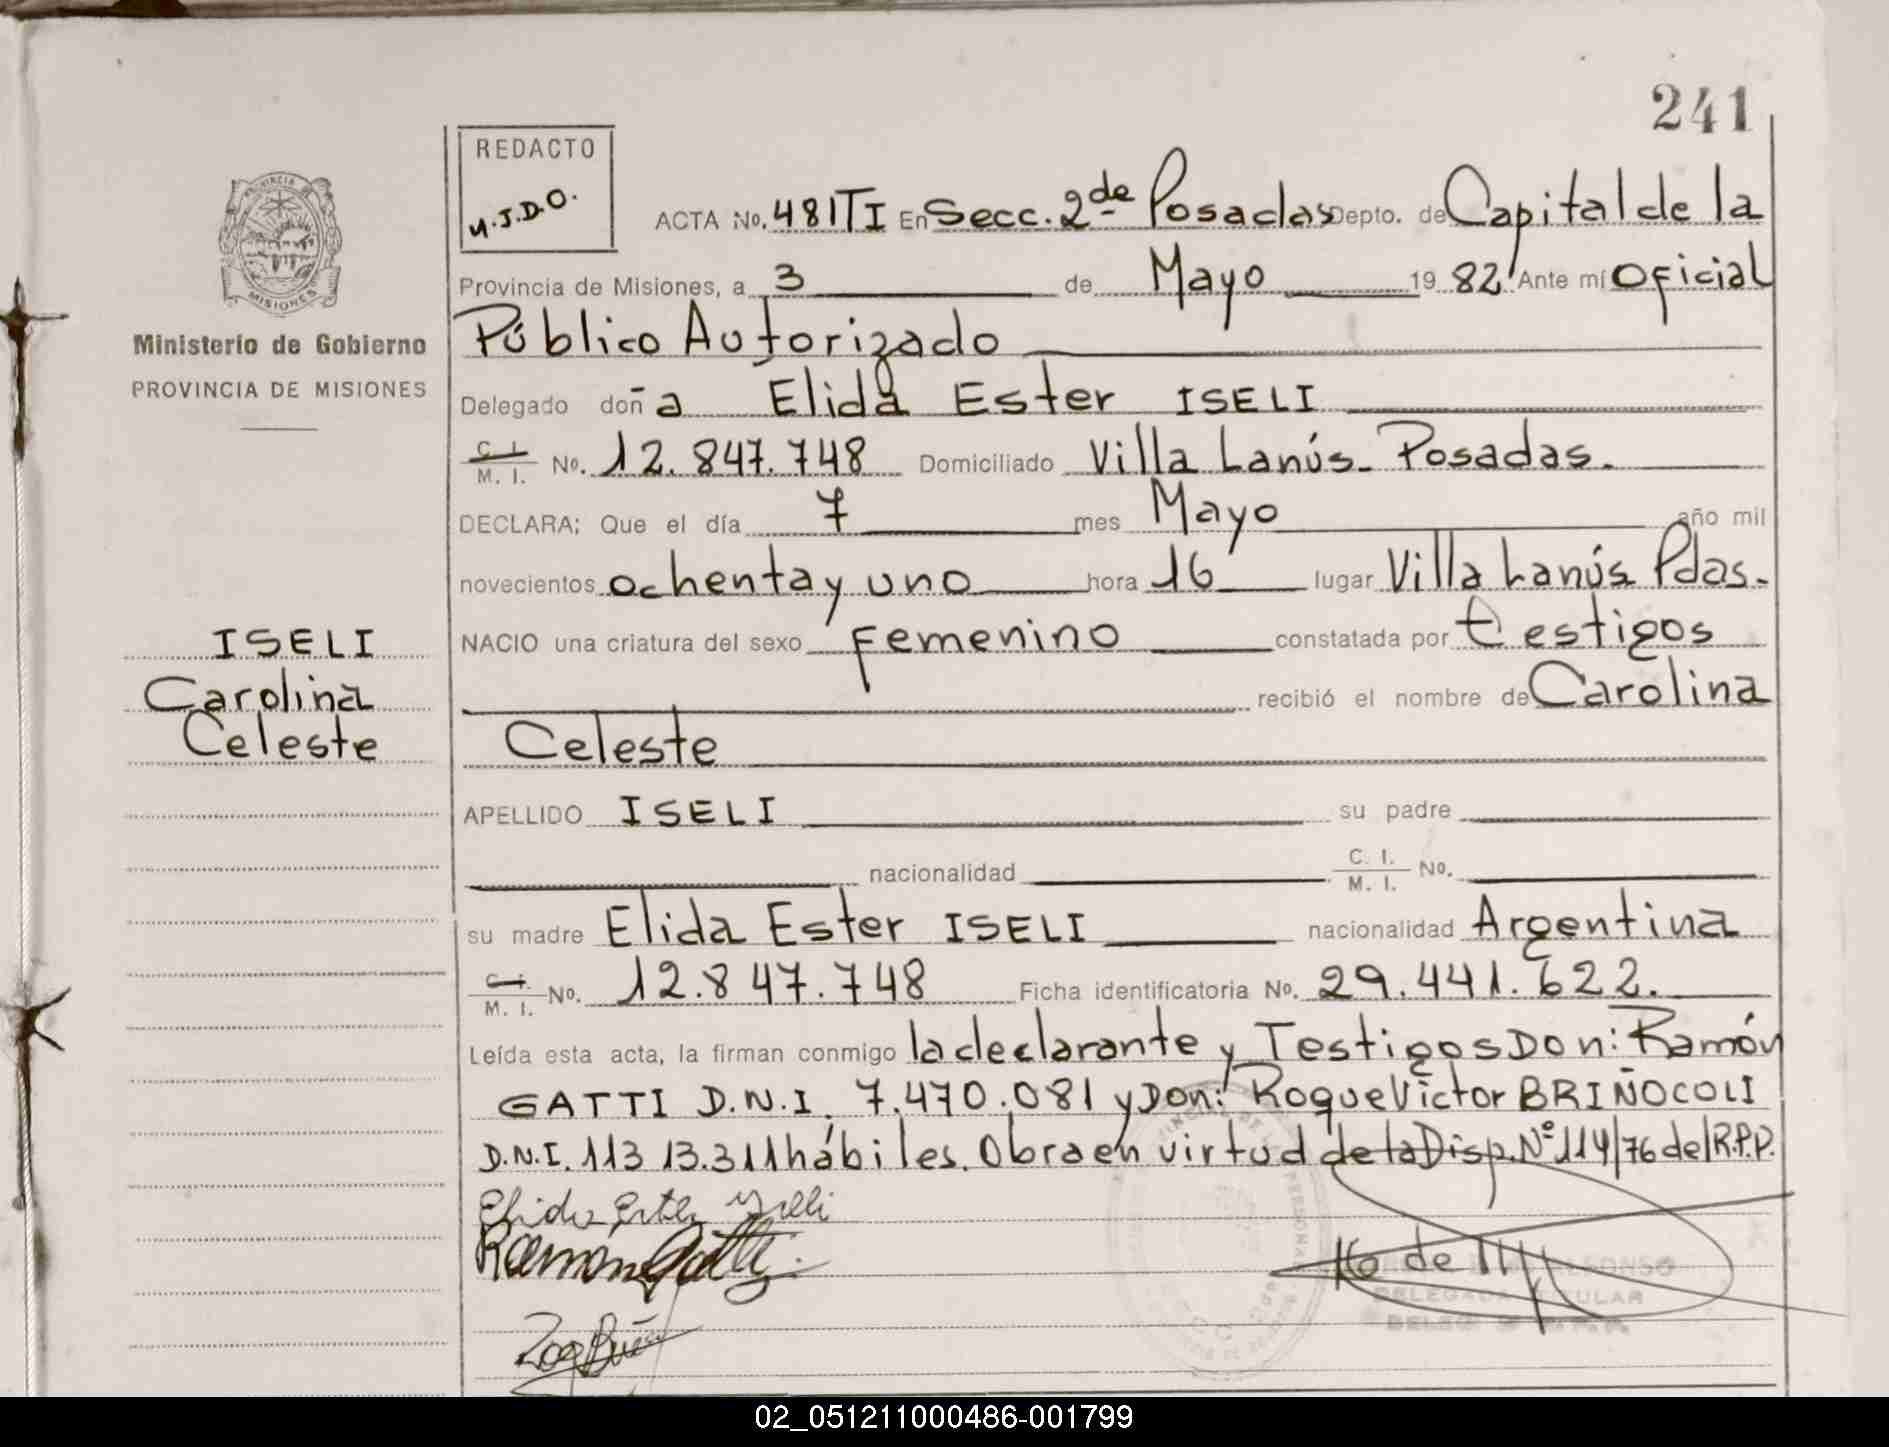 241
REDACTO
M.J.D.O.
ACTA No. 481TI En Secc. 2da Posadas Depto. de Capital de la
Provincia de Misiones, a 3 de Mayo 1982 Ante mí Oficial
Público Autorizado
Delegado doña Elida Ester ISELI
C. I. / M. I. No. 12.847.748 Domiciliado Villa Lanús - Posadas.
DECLARA; Que el día 7 mes Mayo año mil
novecientos ochenta y uno hora 16 lugar Villa Lanús Pdas.
NACIO una criatura del sexo Femenino constatada por testigos
recibió el nombre de Carolina
Celeste
APELLIDO ISELI su padre
nacionalidad C. I. / M. I. No.
su madre Elida Ester ISELI nacionalidad Argentina
C. I. / M. I. No. 12.847.748 Ficha identificatoria No. 29.441.622.
Leída esta acta, la firman conmigo la declarante y Testigos Don: Ramón
GATTI D.N.I. 7.470.081 y Don: Roque Victor BRIÑOCOLI
D.N.I. 11313.311 hábiles. Obra en virtud de la Disp. Nº 114/76 del R.P.P.
Elida Ester Iselli
Ramon Gatti
DELEGADA TITULAR
PROVINCIA DE MISIONES
Ministerio de Gobierno
PROVINCIA DE MISIONES
ISELI
Carolina
Celeste
02_051211000486-001799